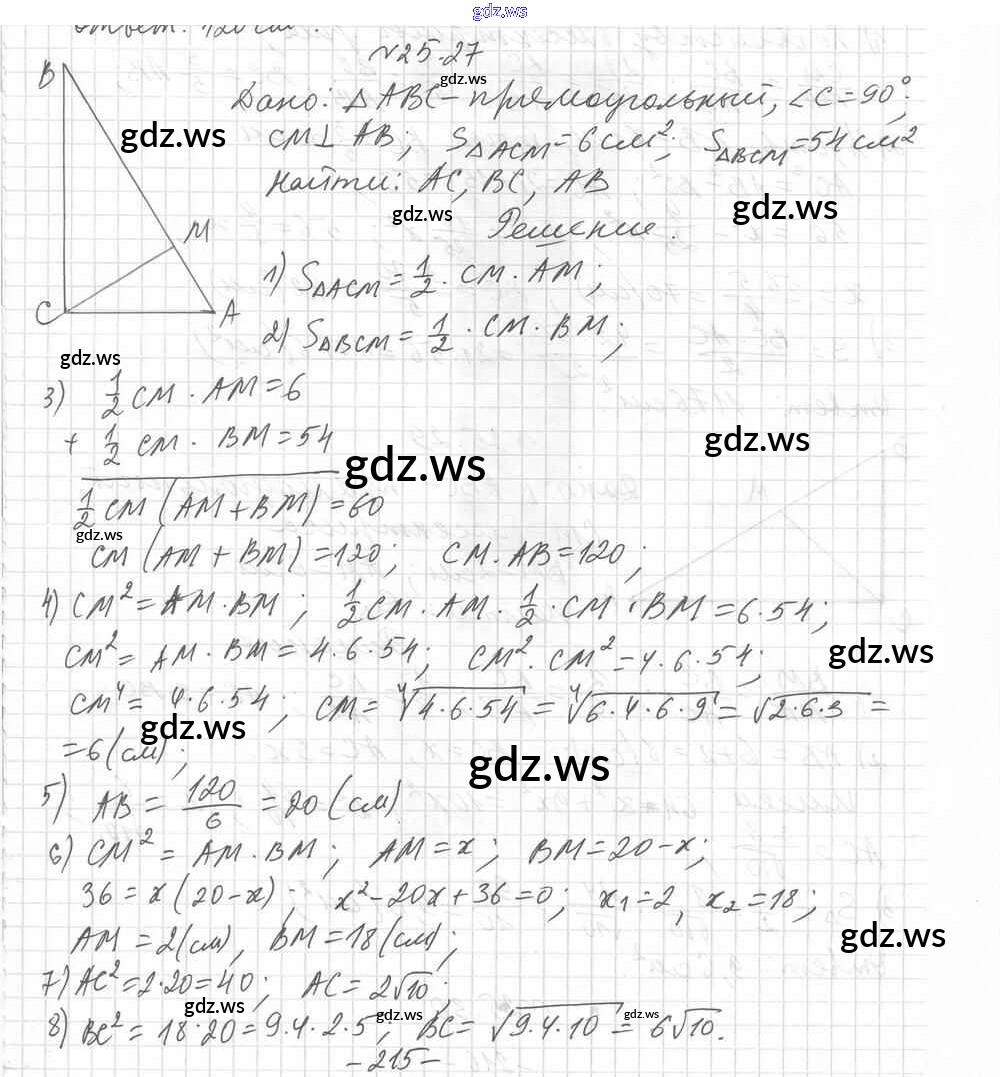 gdz.ws
ответ: 120 см².
№25.27
B
gdz.ws
Дано: △ABC - прямоугольный, ∠C = 90°;
gdz.ws
CM ⊥ AB; S△ACM = 6 см²; S△BCM = 54 см²
Найти: AC, BC, AB
gdz.ws
gdz.ws
Решение.
M
1) S△ACM = 1/2 · CM · AM;
C A
2) S△BCM = 1/2 · CM · BM;
gdz.ws
3) 1/2 CM · AM = 6
+ 1/2 CM · BM = 54
gdz.ws
gdz.ws
1/2 CM (AM + BM) = 60
gdz.ws
CM (AM + BM) = 120; CM · AB = 120;
4) CM² = AM · BM; 1/2 CM · AM · 1/2 · CM · BM = 6 · 54;
CM² = AM · BM = 4 · 6 · 54; CM² · CM² = 4 · 6 · 54;
gdz.ws
CM⁴ = 4 · 6 · 54; CM = ⁴√4·6·54 = ⁴√6·4·6·9 = √2·6·3 =
gdz.ws
= 6 (см);
gdz.ws
5) AB = 120/6 = 20 (см)
6) CM² = AM · BM; AM = x; BM = 20 - x;
36 = x (20 - x); x² - 20x + 36 = 0; x₁ = 2, x₂ = 18;
AM = 2 (см), BM = 18 (см);
gdz.ws
7) AC² = 2 · 20 = 40; AC = 2√10;
gdz.ws
gdz.ws
gdz.ws
8) BC² = 18 · 20 = 9 · 4 · 2 · 5; BC = √9·4·10 = 6√10.
- 215 -